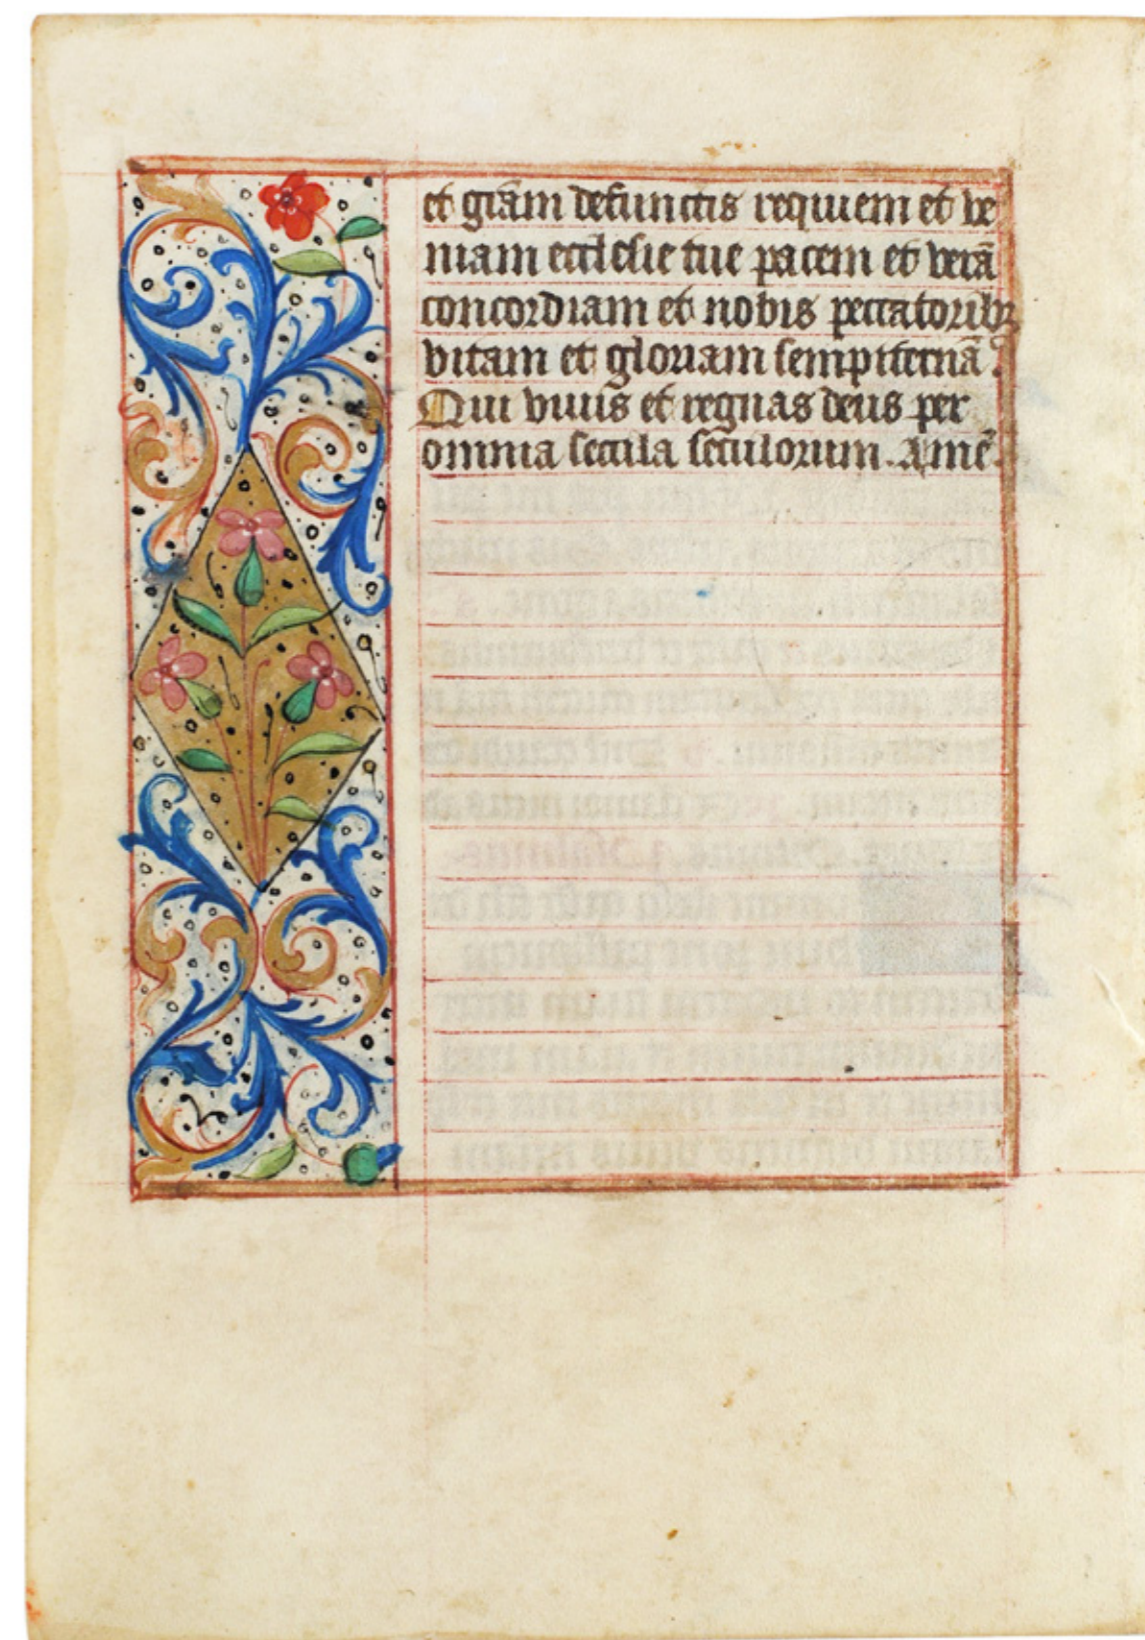 et grām defunctis requiem et ve
niam ecclesie tue pacem et verā
concordiam et nobis peccatoribꝫ
vitam et gloriam sempiternā.
Qui viuis et regnas deus per
omnia secula seculorum. Amē.